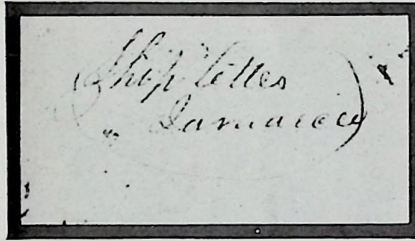 Ship letter
Jamaica